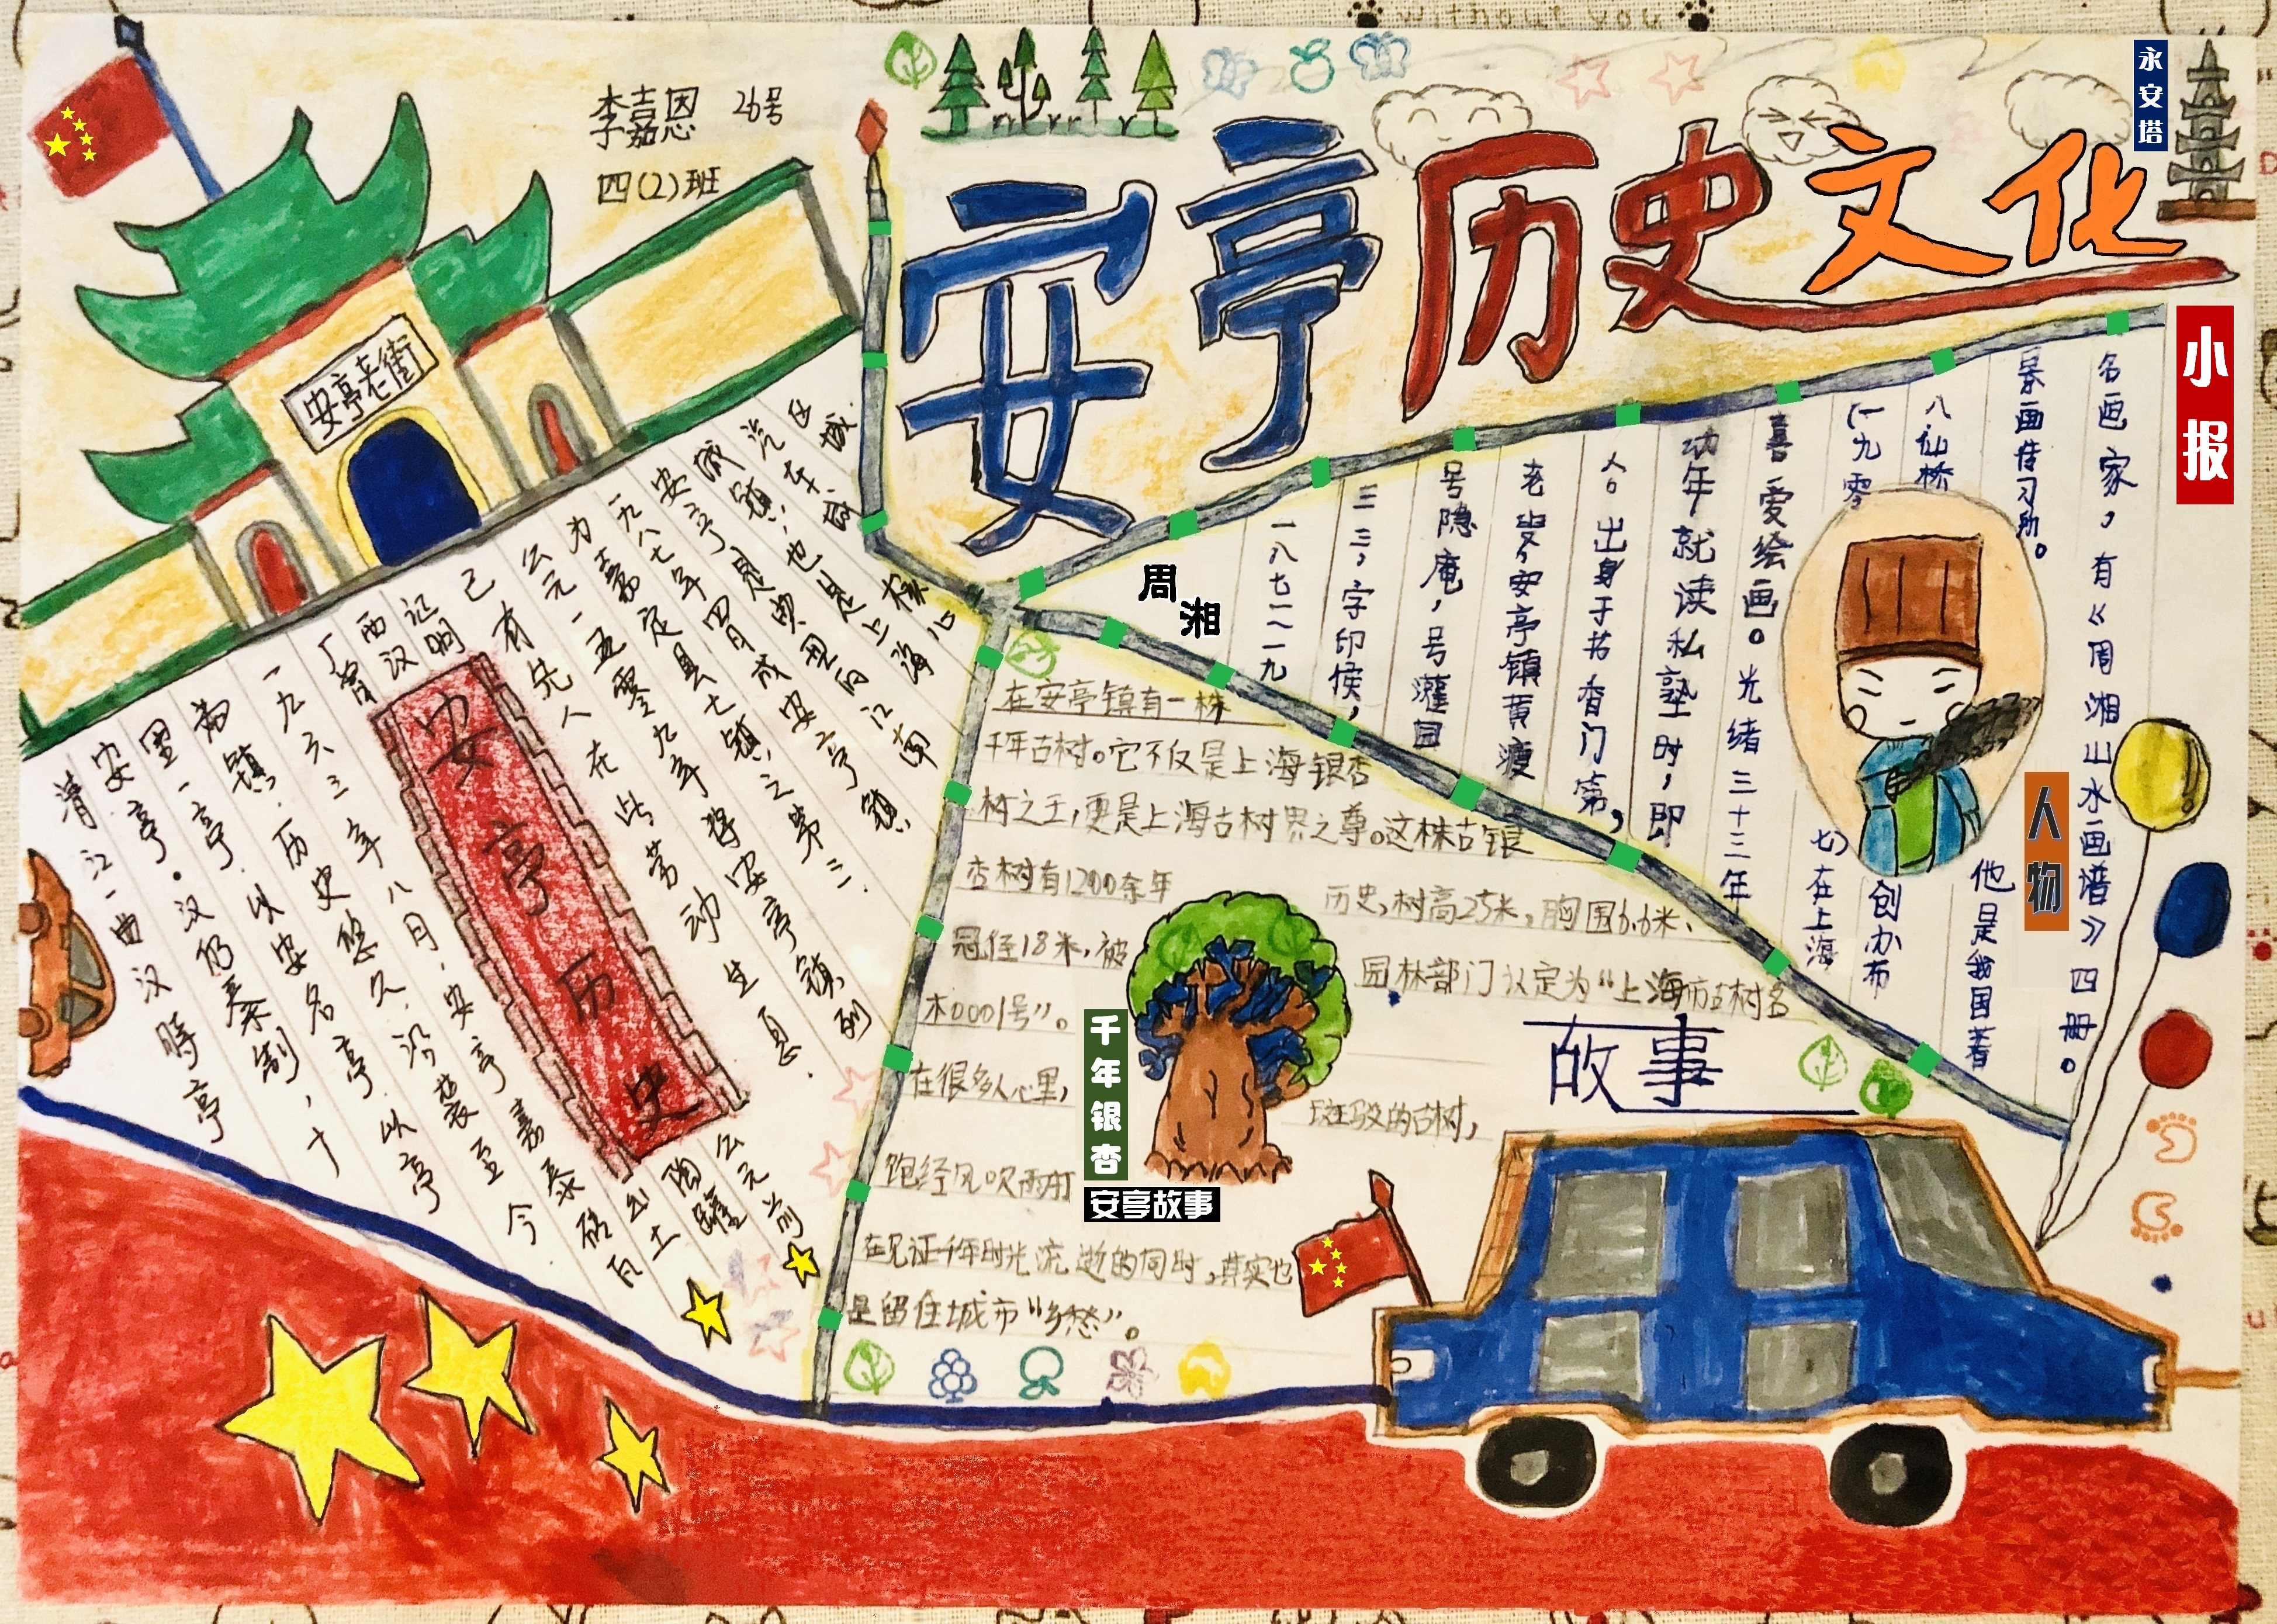 李嘉恩 26号
四(2)班
安亭历史文化
小报
永安塔
安亭老街
安亭历史
菁江一曲汉時亭
安亭.汉仍秦制,十
里一亭.以安名亭.以亭
为镇.历史悠久.沿袭至今
一九六三年八月.安亭嘉泰砖瓦
厂窑出土
西汉陶罐
证明公元前
己有先人在此劳动生息.
公元一五零九年将安亭镇列
为嘉定县七镇之第三.
一九八七年四月成安亭镇
安亭是典型的江南
城镇,也是上海
汽车城核心
区域.
周湘
人物
一八七一一九
三三,字印侯,
号隐庵,号灌园
老叟,安亭镇黄渡
人。出身于书香门第,
幼年就读私塾时,即
喜爱绘画。光绪三十三年
(一九零七)在上海
八仙桥创办布
景画传习所。他是我国著
名画家,有《周湘山水画谱》四册。
故事
千年银杏
安亭故事
在安亭镇有一株
千年古树。它不仅是上海银杏
树之王,更是上海古树界之尊。这株古银
杏树有1200余年历史,树高25米,胸围6.6米、
冠径18米,被园林部门认定为“上海市古树名
木0001号”。
在很多人心里,斑驳的古树,
饱经风吹雨打
在见证千年时光流逝的同时,其实也
是留住城市“乡愁”。
without you